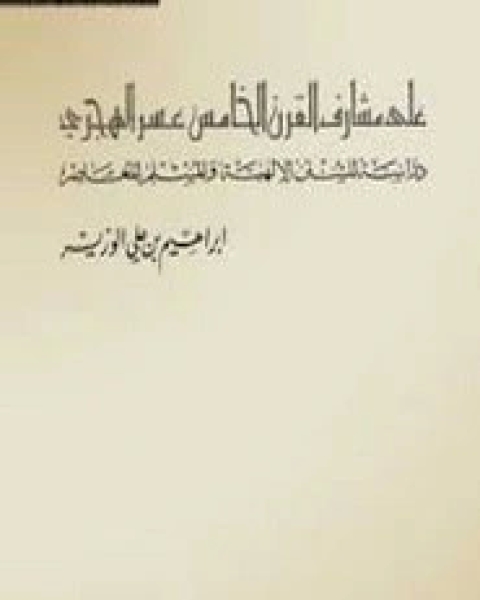 على مشارف القرن الخامس عشر الهجري
دراسة للسنن الإلهية والمسلم المعاصر
إبراهيم بن علي الوزير